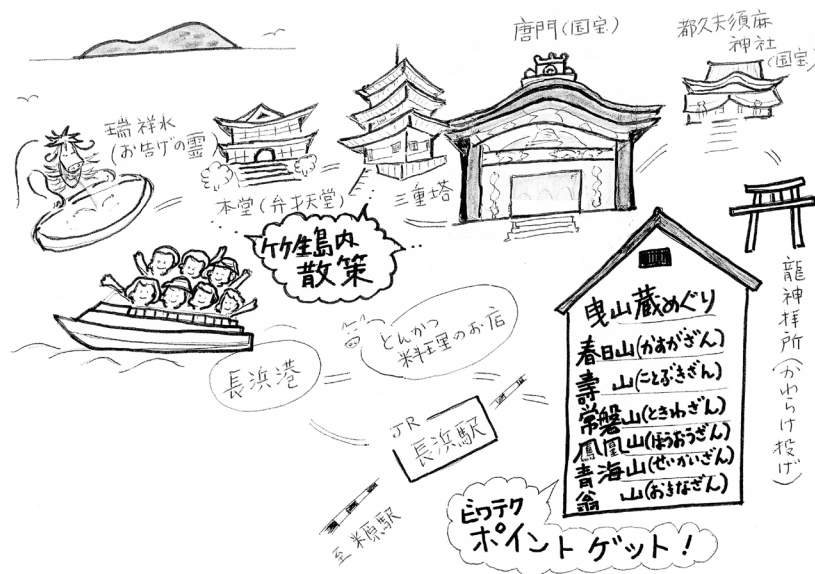 唐門(国宝)
都久夫須麻
神社
(国宝)
瑞祥水
(お告げの霊)
本堂(弁才天堂)
三重塔
竹生島内
散策
龍神拝所(かわらけ投げ)
長浜港
とんかつ
料理のお店
JR
長浜駅
至米原駅
曳山蔵めぐり
春日山(かすがざん)
壽山(ことぶきざん)
常磐山(ときわざん)
鳳凰山(ほうおうざん)
青海山(せいがいざん)
翁山(おきなざん)
ビワテク
ポイントゲット!